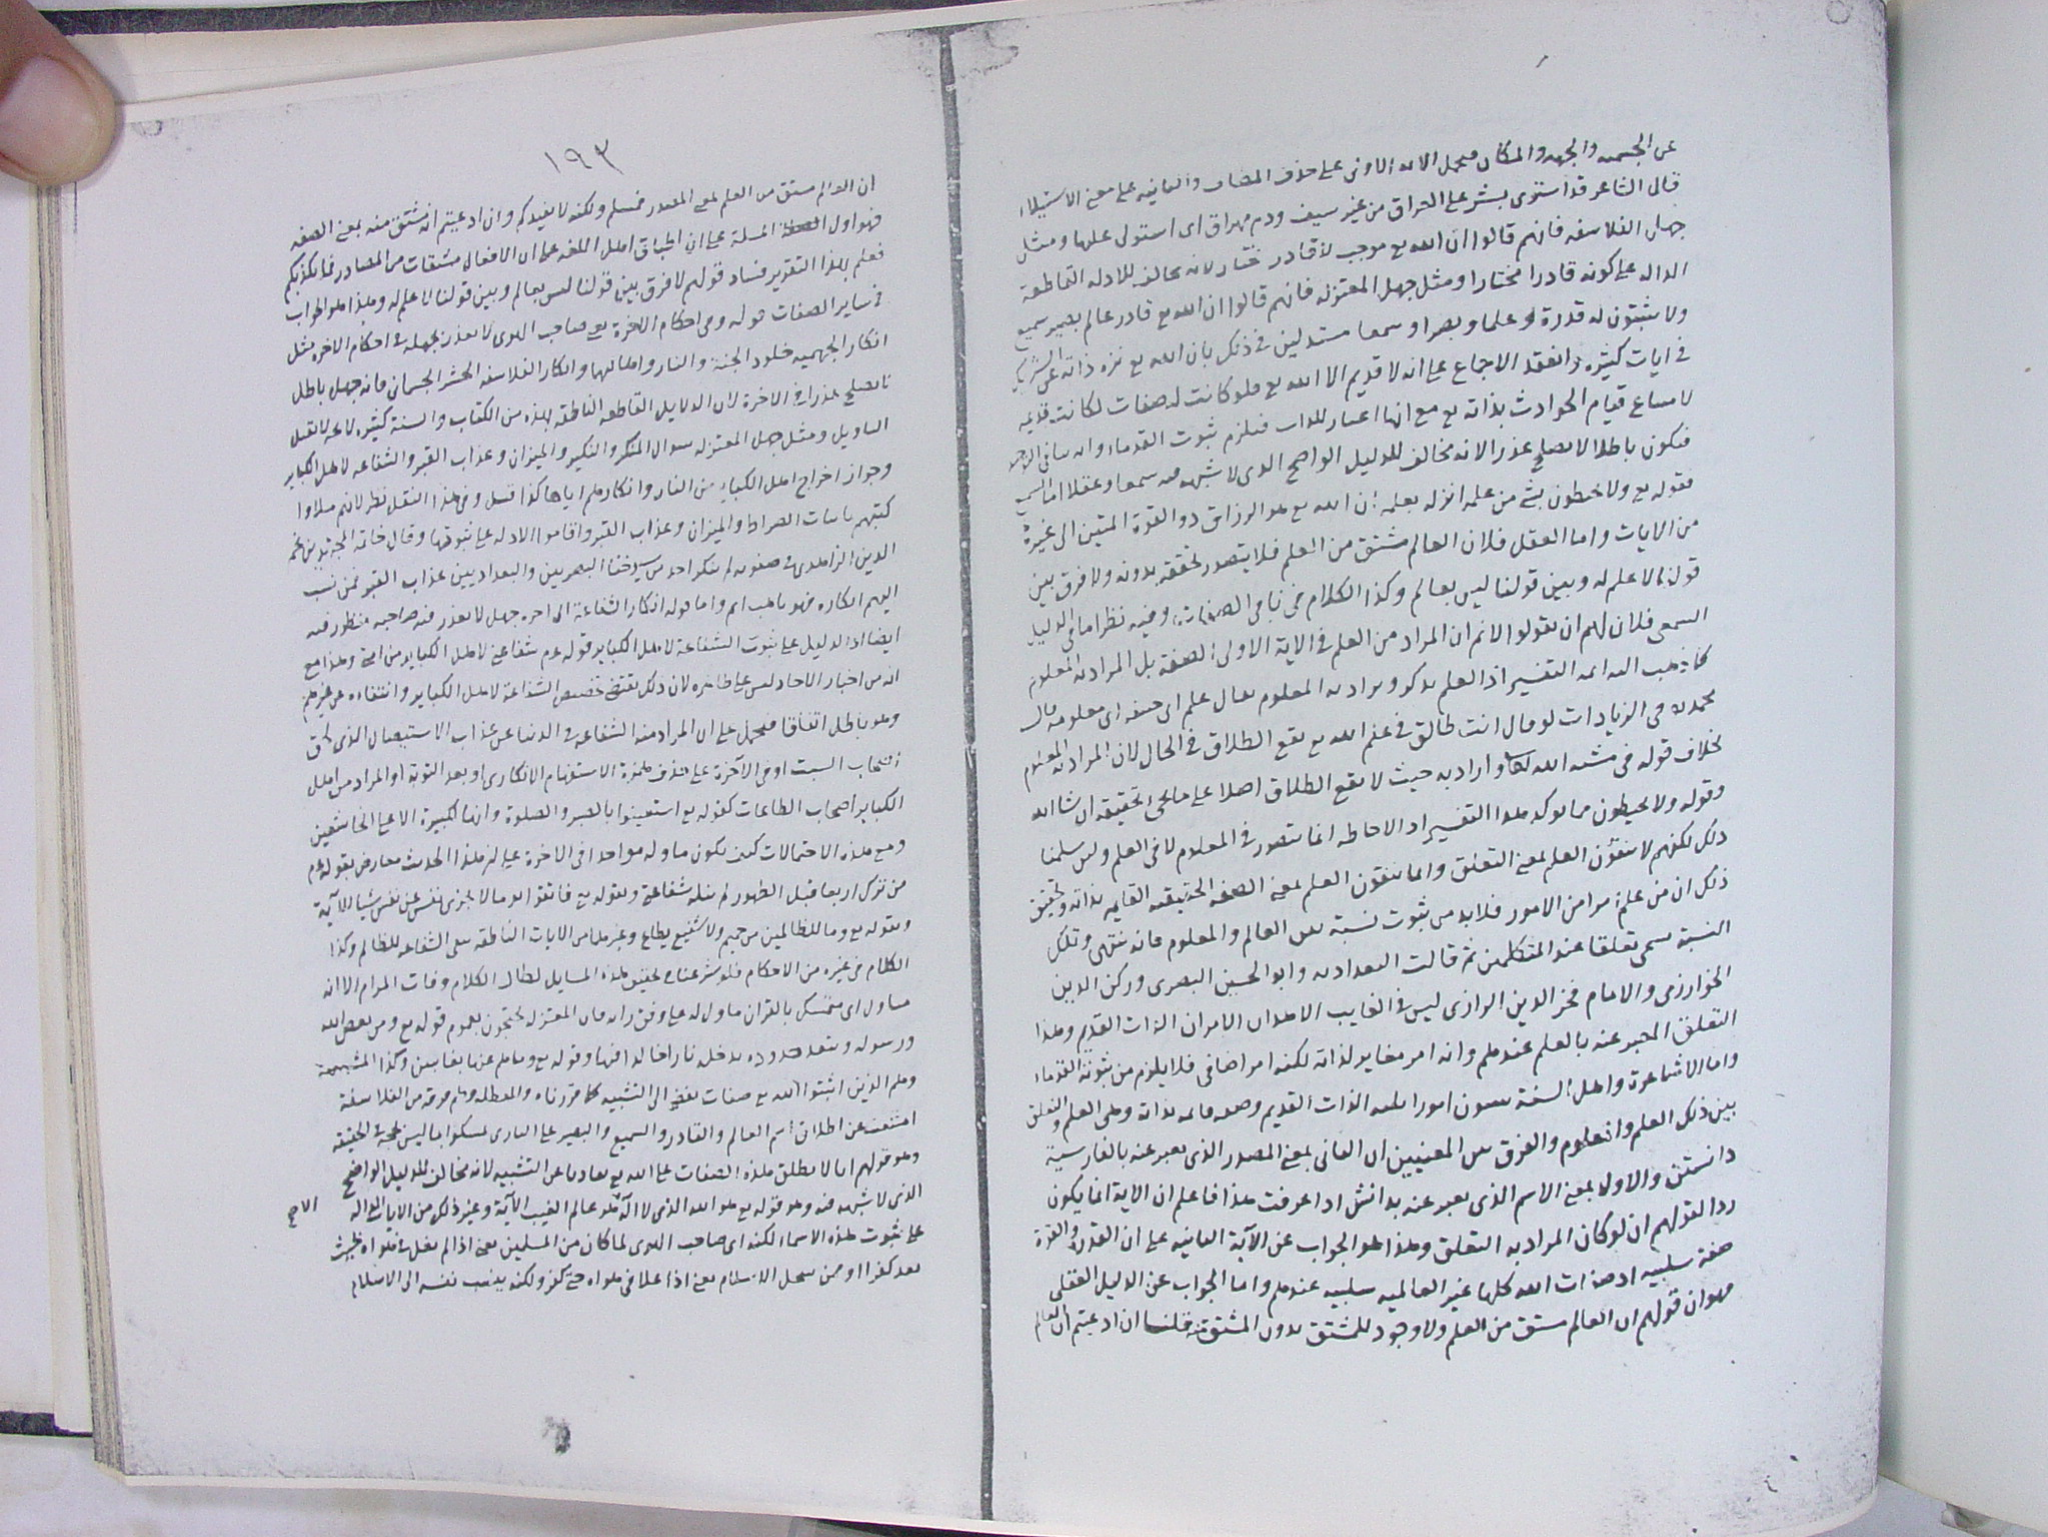 عن الجسمية والجهة والمكان فتحمل الاية الاولى على حذف المضاف والثانية على معنى الاستيلاء
قال الشاعر قد استوى بشر على العراق من غير سيف ودم مهراق اى استولى عليها ومثل
جهل الفلاسفه فانهم قالوا ان الله تع موجب لا قادر مختار لانه مخالف للادلة القاطعة
الداله على كونه قادرا مختارا ومثل جهل المعتزله فانهم قالوا ان الله تع قادر عالم بصير سميع
ولا يثبتون له قدرة ولا علما وبصرا وسمعا مستدلين فى ذلك بان الله تع نزه ذاته عن الشريك
فى ايات كثيره وانعقد الاجماع على انه لا قديم الا الله تع فلو كانت له صفات لكانت قديمه
لامتناع قيام الحوادث بذاته تع مع انها اغيار للذات فيلزم ثبوت القدماء وانه ينافى التوحيد
فيكون باطلا لا يصلح عذرا لانه مخالف للدليل الواضح الذى لا شبهه فيه سمعا وعقلا اما السمع
فقوله تع ولا يحيطون بشئ من علمه انزله بعلمه ان الله تع هو الرزاق ذو القوة المتين الى غيره
من الايات واما العقل فلان العالم مشتق من العلم فلا يتصور تحققه بدونه ولا فرق بين
قولنا لا علم له وبين قولنا ليس بعالم وكذا الكلام فى باقى الصفات وفيه نظر اما فى الدليل
السمعى فلان لهم ان يقولوا لانم ان المراد من العلم فى الاية الاولى الصفة بل المراد به المعلوم
كما ذهب اليه ائمه التفسير اذ العلم يذكر ويراد به المعلوم يقال علم ابى حنيفه اى معلومه قال
محمد ره فى الزيادات لو قال انت طالق فى علم الله تع يقع الطلاق فى الحال لان المراد به المعلوم
بخلاف قوله فى مشية الله تعالى واراد به حيث لا يقع الطلاق اصلا على ما يجئ تحقيقه ان شا الله
وقوله ولا يحيطون مما يوكد هذا التفسير اذ الاحاطه انما تتصور فى المعلوم لا فى العلم ولئن سلمنا
ذلك لكنهم لا ينفون العلم بمعنى التعلق وانما ينفون العلم بمعنى الصفة الحقيقيه القايمه بذاته وتحقيق
ذلك ان من علم امرا من الامور فلا بد من ثبوت نسبة بين العالم والمعلوم فانه ينتهى وتلك
النسبة تسمى تعلقا عند المتكلمين ثم قالت البغداديه وابو الحسين البصرى وركن الدين
الخوارزمى والامام فخر الدين الرازى ليس فى الغايب الا هذان الامران الذات القديم وهذا
التعلق المعبر عنه بالعلم عندهم وانه امر مغاير لذاته لكنه امر اضافى فلا يلزم من ثبوته القدماء
واما الاشاعرة واهل السنة يثبتون امورا ثلثه الذات القديم وصفه قايمه بذاته وهى العلم والتعلق
بين ذلك العلم والمعلوم والفرق بين المعنيين ان الثانى بمعنى المصدر الذى يعبر عنه بالفارسية
دانستن والاول بمعنى الاسم الذى يعبر عنه بدانش اذا عرفت هذا فاعلم ان الاية انما يكون
ردا لقولهم ان لو كان المراد به التعلق وهذا هو الجواب عن الآية الثانيه على ان القدرة والقوة
صفة سلبيه اذ صفات الله كلها غير العالميه سلبيه عندهم واما الجواب عن الدليل العقلى
فهو ان قولهم ان العالم مشتق من العلم ولا وجود للمشتق بدون المشتق منه قلنا ان ادعيتم ان العالم
١٩٣
ان العالم مشتق من العلم بمعنى المصدر فمسلم ولكنه لا يفيدكم وان ادعيتم انه مشتق منه بمعنى الصفه
فهو اول المسلة على ان اطباق اهل اللغه على ان الافعال مشتقات من المصادر مما يكذبكم
فعلم بهذا التقرير فساد قولهم لا فرق بين قولنا ليس بعالم وبين قولنا لا علم له وهذا هو الجواب
فى ساير الصفات قوله وفى احكام الآخرة يع صاحب الهوى لا يعذر بجهله فى احكام الاخره مثل
انكار الجهميه خلود الجنة والنار واهاليها وانكار الفلاسفه الحشر الجسمانى فانه جهل باطل
لا يصلح عذرا فى الاخرة لان الدلايل القاطعه الناطقه بهذه من الكتاب والسنة كثيره لا يحتمل
التاويل ومثل جهل المعتزله سوال المنكر والنكير والميزان وعذاب القبر والشفاعه لاهل الكباير
وجواز اخراج اهل الكباير من النار وانكارهم اياها كذا قيل وفى هذا النقل نظر لانهم ملاوا
كتبهم باثبات الصراط والميزان وعذاب القبر واقاموا الادله على ثبوتها وقال خاتمه المجتهدين نجم
الدين الزاهدى فى صفوته لم ينكر احد من شيوخنا البصريين والبغداديين عذاب القبر فمن نسب
اليهم انكاره فهو باهت اثم واما قوله انكار الشفاعة الى اخره جهل لا يعذر فيه صاحبه فمنظور فيه
ايضا اذ الدليل على ثبوت الشفاعة لاهل الكباير قوله عم شفاعتى لاهل الكباير من امتى وهذا مع
انه من اخبار الاحاد ليس على ظاهره لان ذلك يقتضى تخصيص الشفاعة لاهل الكباير وانتفاءه عن غيرهم
وهو باطل اتفاقا فيحمل على ان المراد منه الشفاعه فى الدنيا عن عذاب الاستيصال الذى لحق
اصحاب السبت او فى الآخرة على حذف همزة الاستفهام الانكارى او بعد التوبة او المراد من اهل
الكباير اصحاب الطاعات كقوله تع استعينوا بالصبر والصلوة وانها لكبيرة الا على الخاشعين
ومع هذه الاحتمالات كيف يكون ماوله مواخذا فى الاخرة على ان هذا الحديث معارض بقوله عم
من ترك اربعا قبل الظهور لم ينله شفاعتى وبقوله تع فاتقوا يوما لا تجزى نفس عن نفس شيا الآية
وبقوله تع وما للظالمين من حميم ولا شفيع يطاع وغيرها من الايات الناطقه بنفى الشفاعه للظالم وكذا
الكلام فى غيره من الاحكام فلو شرعنا فى تحقيق هذه المسايل لطال الكلام وفات المرام الا انه
متاول اى متمسك بالقران ماول له على وفق رايه فان المعتزله يحتجون بعموم قوله تع ومن يعص الله
ورسوله ويتعد حدوده يدخله نارا خالدا فيها وقوله تع وما هم عنها بغائبين وكذا المشبهة
وهم الذين اثبتوا لله تع صفات يفضى الى التشبيه كما قررناه والمعطله وهم فرقه من الفلاسفة
امتنعت عن اطلاق اسم العالم والقادر والسميع والبصير على البارى تمسكوا بما ليس بحجة فى الحقيقه
وهو قولهم انا لا نطلق هذه الصفات على الله تع تفاديا عن التشبيه لانه مخالف للدليل الواضح
الذى لا شبهه فيه وهو قوله تع هو الله الذى لا اله الا هو عالم الغيب الآية وغير ذلك من الايات الداله
على ثبوت هذه الاسماء لكنه اى صاحب الهوى لما كان من المسلمين يعنى اذا لم يغل فى هواه بحيث
يعد كفرا او ممن ينتحل الاسلام يعنى اذا غلا فى هواه حتى كفر ولكنه ينسب نفسه الى الاسلام